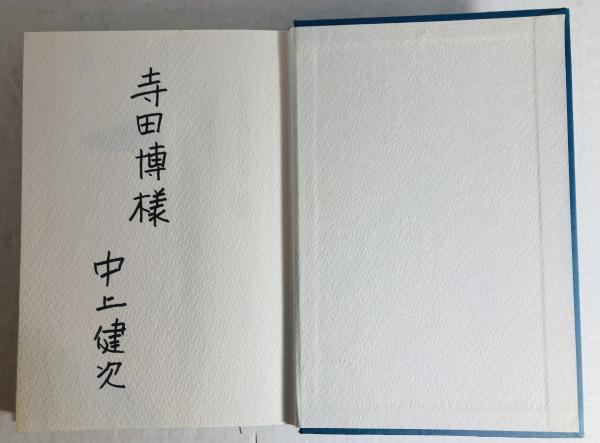 寺田博様
中上健次